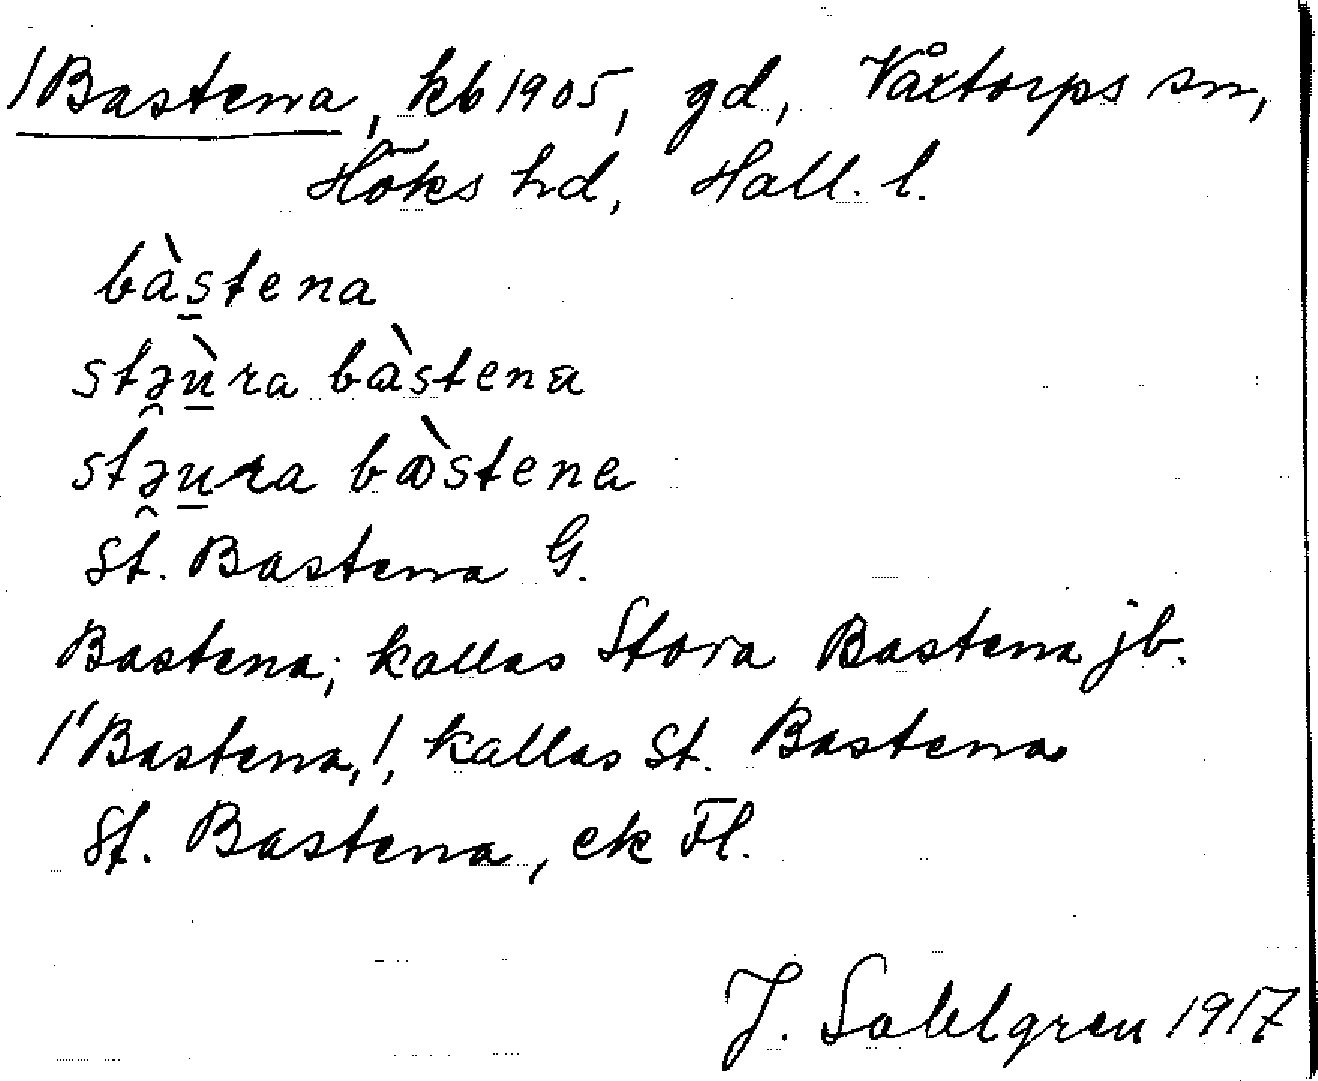 /Bastena, kb 1905, gd, Våxtorps sn,
Höks hd, Hall. l.
bàs̲tena
stə̯ù̲ra bàstena
stə̯u̲ra bàstena
St. Bastena G.
Bastena; kallas Stora Bastena jb.
/"Bastena,/, kallas St. Bastena
St. Bastena, ek Fl.
J. Sahlgren 1917